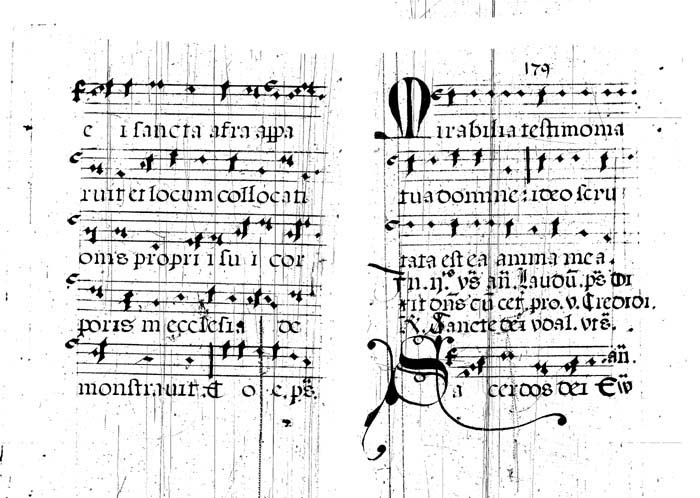 e i sancta afra appa
ruit et locum collocati
onis proprii sui cor
poris in ecclesia de
monstravit. E o e. ps.
179
Mirabilia testimonia
tua domine: ideo scru
tata est ea anima mea.
ys añ. Laudũ. ps. Di
xit dns cũ cet. pro. v. Credidi.
Sancte dei
añ.
Sacerdos dei